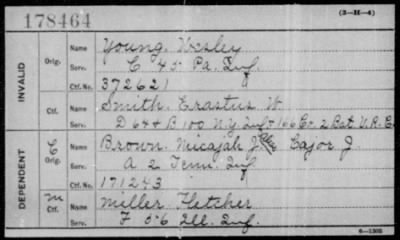 178464
(3-H-4)
INVALID
Orig. Name Young, Wesley
Serv. C 45 Pa. Inf.
Ctf. No. 372621
Ctf. Name Smith, Erastus W
Serv. D 64 & B 100 N.Y. Inf & 166 Co. 2 Bat V.R.C.
DEPENDENT
C Orig. Name Brown, Micajah J. Cajor J.
Serv. A 2 Tenn. Inf
Ctf. No. 171243
m Ctf. Name Miller Fletcher
Serv. F 56 Ill. Inf.
6—1302